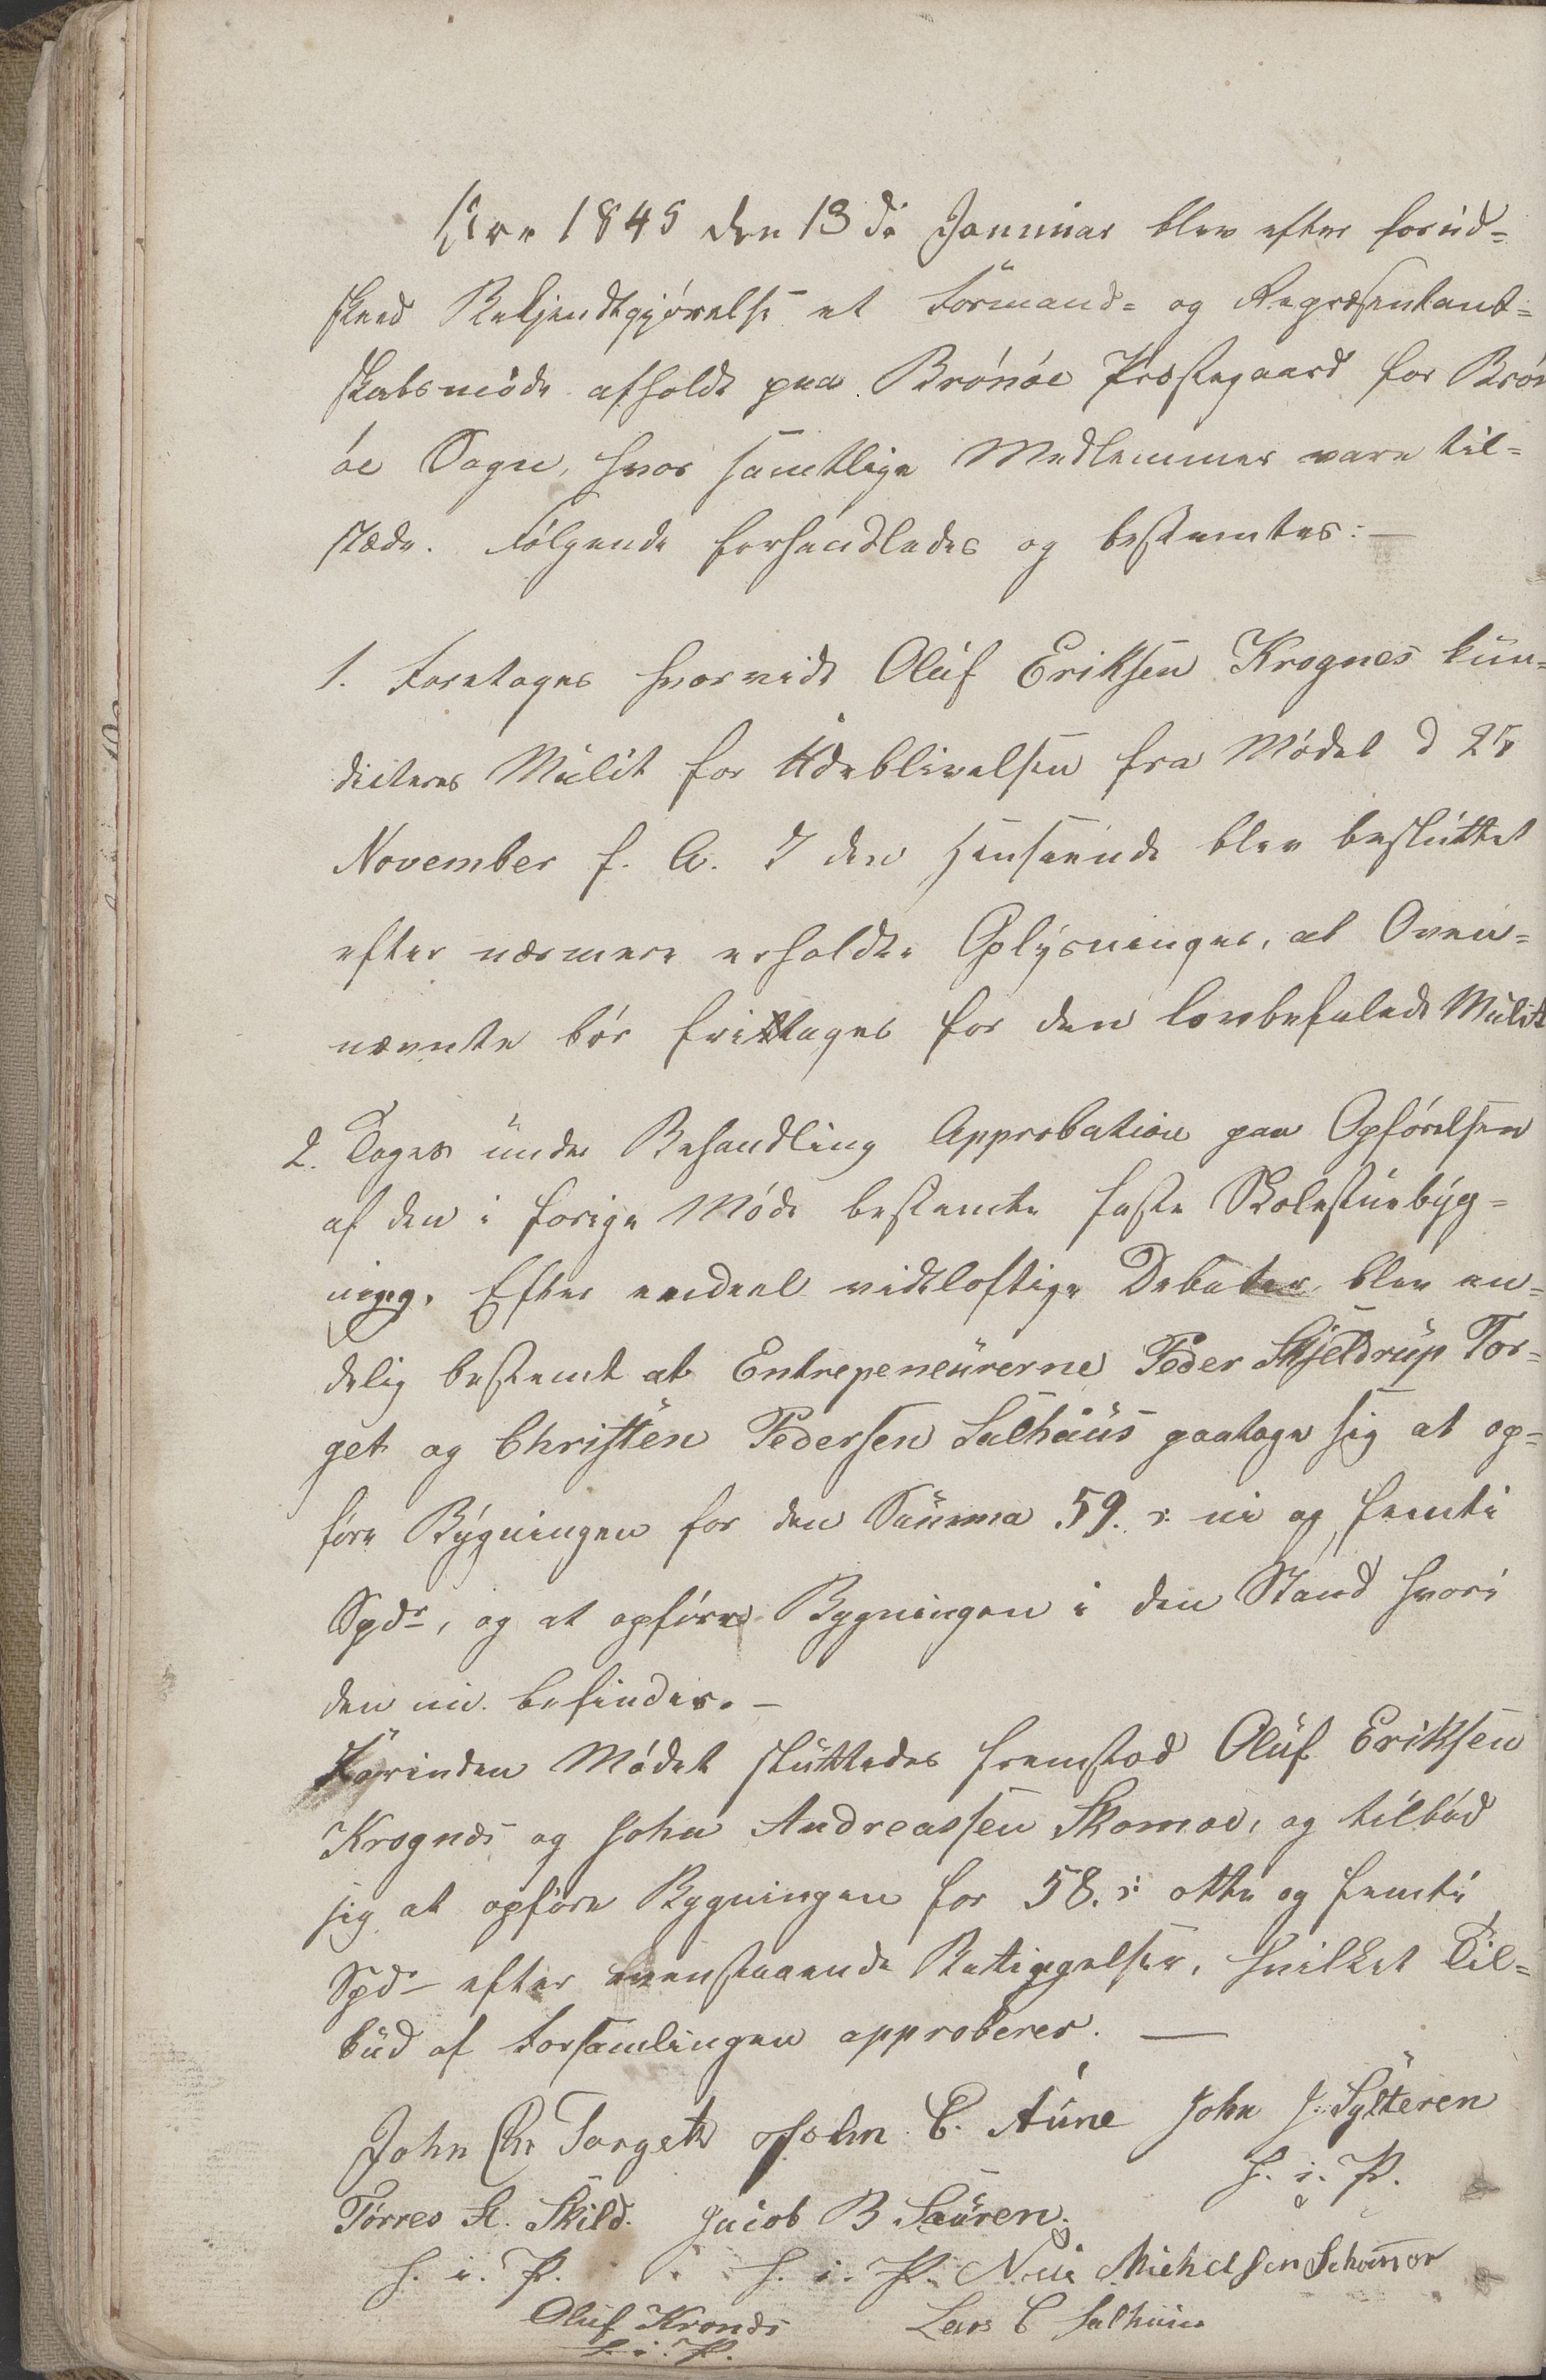 Aar 1845 den 13de Januar blev efter forud=
skeed Bekjendtgjørelse et Formand= og Repræsentant=
skabsmøde afholdt paa Brønøe Præstegaard for Brøn
øe Sogn, hvor samtlige Medlemmer vare til=
stæde. Følgende forhandledes og bestemtes:—
1. Foretoges hvorvidt Oluf Eriksen Krognes kun=
dicteres Mulct for Udeblivelsen fra Mødet d 25
November f. A. I den Henseende blev besluttet
efter nærmere erholdte Oplysninger, at Oven=
nævnte bør frittages for den lovbefalede Mulct
2. Toges under Behandling Approbation paa Opførelsen
af den i forige Møde bestemte faste Skolestuebyg=
ning. Efter endeel vidtløftige Debatter blev en=
delig bestemt at Entrepeneurerne Peder Skjeldrup Tor=
get og Christen Pedersen Salhuus paatoge sig at op=
føre Bygningen for den Summa 59. s: ni og femti
Spdr, og at opføre Bygningen i den Stand hvori
den nu befindes.—
Førinden Mødet sluttedes fremstod Oluf Eriksen
Krognæs og John Andreassen Skomoe, og tilbød
sig at opføre Bygningen for 58. s: otte og femti
Spdr efter ovenstaaende Betingelser, hvilket Til=
bud af Forsamlingen approberes. —
John Chr Torget John C. Aune John J. Sylteren
h. i. P.
Tørres A. Skild. Jacob B Sauren.
h. i. P. h. i. P. Michelsen
Oluf Kronæs Lars C Salhuus
h. i. P.